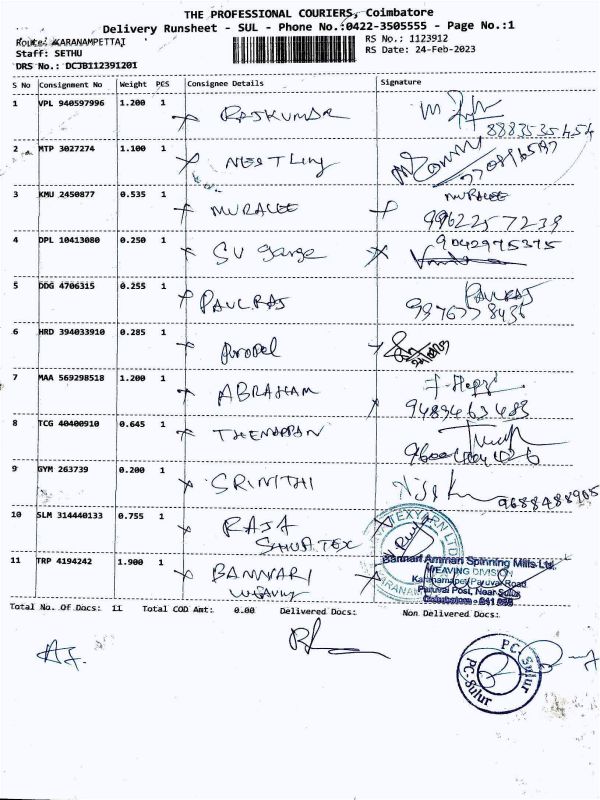 THE PROFESSIONAL COURIERS, Coimbatore
Delivery Runsheet - SUL - Phone No.:0422-3505555 - Page No.:1
Route: KARANAMPETTAI RS No.: 1123912
Staff: SETHU RS Date: 24-Feb-2023
DRS No.: DCJB112391201
S No Consignment No Weight PCS Consignee Details Signature
1 VPL 940597996 1.200 1 RAJKUMAR
8883535454
2 MTP 3027274 1.100 1 NESTLING
3 KMU 2450877 0.535 1 MURALEE MURALEE
9962257239
4 DPL 10413080 0.250 1 SV garge 9042975375
5 DDG 4706315 0.255 1 PAULRAJ PAULRAJ
6 HRD 394033910 0.285 1 Propel
7 MAA 569298518 1.200 1 ABRAHAM
9489463483
8 TCG 40400910 0.645 1 THENAPPAN
9 GYM 263739 0.200 1 SRINITHI
9688488905
10 SLM 314440133 0.755 1 RAJA
TEXYARN LTD
11 TRP 4194242 1.900 1 BANNARI
Bannari Amman Spinning Mills Ltd.
WEAVING DIVISION
Karanampet Paruvai Road
Paruvai Post, Near Sulur
Total No. Of Docs: 11 Total COD Amt: 0.00 Delivered Docs: Non Delivered Docs:
PC-Sulur
PC-Sulur